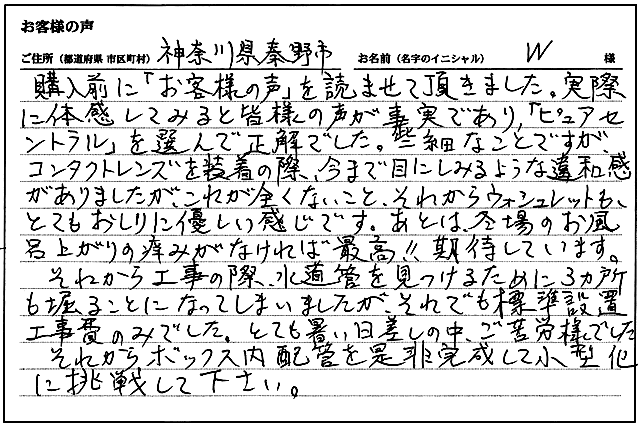 お客様の声
ご住所（都道府県 市区町村） 神奈川県秦野市 お名前（名字のイニシャル） W 様
購入前に「お客様の声」を読ませて頂きました。実際
に体感してみると皆様の声が事実であり、「ピュアセ
ントラル」を選んで正解でした。些細なことですが、
コンタクトレンズを装着の際、今まで目にしみるような違和感
がありましたが、これが全くないこと、それからウォシュレットも、
とてもおしりに優しい感じです。あとは、冬場のお風
呂上がりの痒みがなければ最高!!期待しています。
それから工事の際、水道管を見つけるために、3カ所
も堀ることになってしまいましたが、それでも標準設置
工事費のみでした。とても暑い日差しの中、ご苦労様でした
それからボックス内配管を是非完成して小型化
に挑戦して下さい。